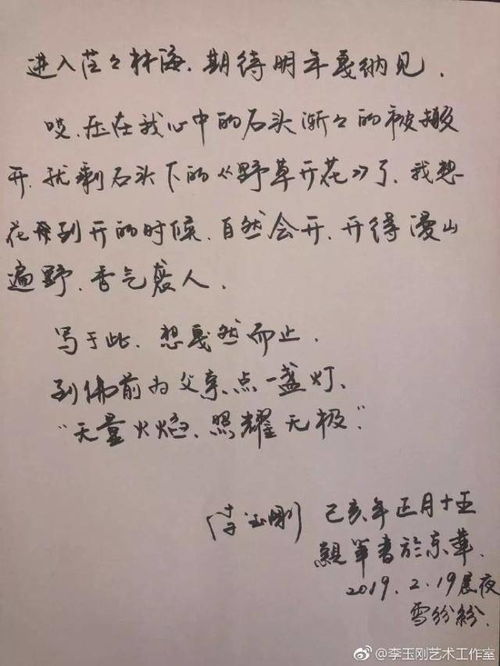 进入茫々林海，期待明年戛纳见。
哎，压在我心中的石头渐々的被搬
开，就剩石头下的《野草开花》了，我想
花到开的时候，自然会开，开得漫山
遍野，香气袭人。
写于此，想戛然而止，
到佛前为父亲点一盏灯，
“无量火焰，照耀无极”
李玉刚
己亥年正月十五
亲笔书於京華
2019.2.19晨夜
雪纷纷。
@李玉刚艺术工作室